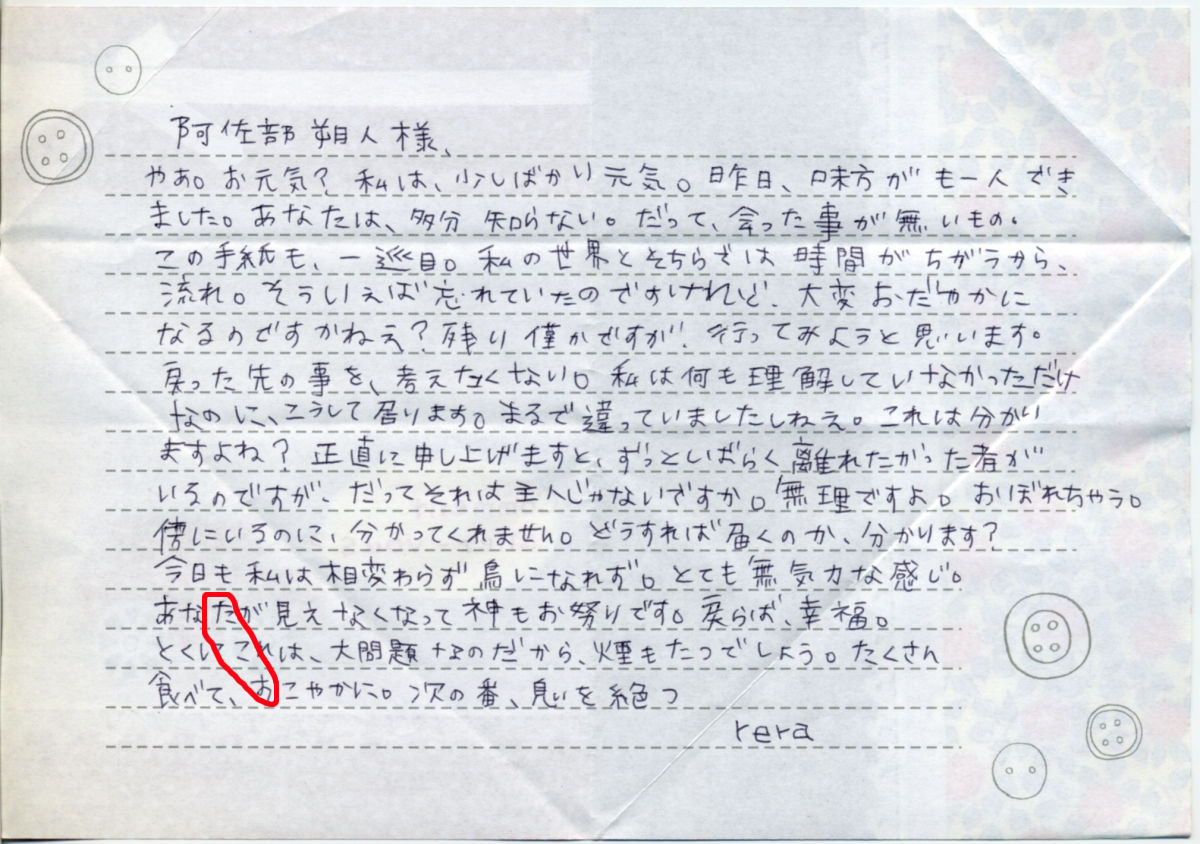 阿佐部朔人様、
やあ。お元気？私は、少しばかり元気。昨日、味方がも一人でき
ました。あなたは、多分知らない。だって、会った事が無いもの。
この手紙も、一巡目。私の世界とそちらでは時間がちがうから、
流れ。そういえば忘れていたのですけれど、大変おだやかに
なるのですかねえ？残り僅かですが、行ってみようと思います。
戻った先の事を、考えたくない。私は何も理解していなかっただけ
なのに、こうして居ります。まるで違っていましたしねえ。これは分かい
ますよね？正直に申し上げますと、ずっといばらく離れたがった者が
いるのですが、だってそれは主人じゃないですか。無理ですよ。おぼれちゃう。
傍にいるのに、分かってくれません。どうすれば届くのか、分かります？
今日も私は相変わらず鳥になれず。とても無気力な感じ。
あなたが見えなくなって神もお努りです。戻らば、幸福。
とくにこれは、大問題なのだから、煙もたつでしょう。たくさん
食べて、おこやかに。次の番、息いを絶つ
rera